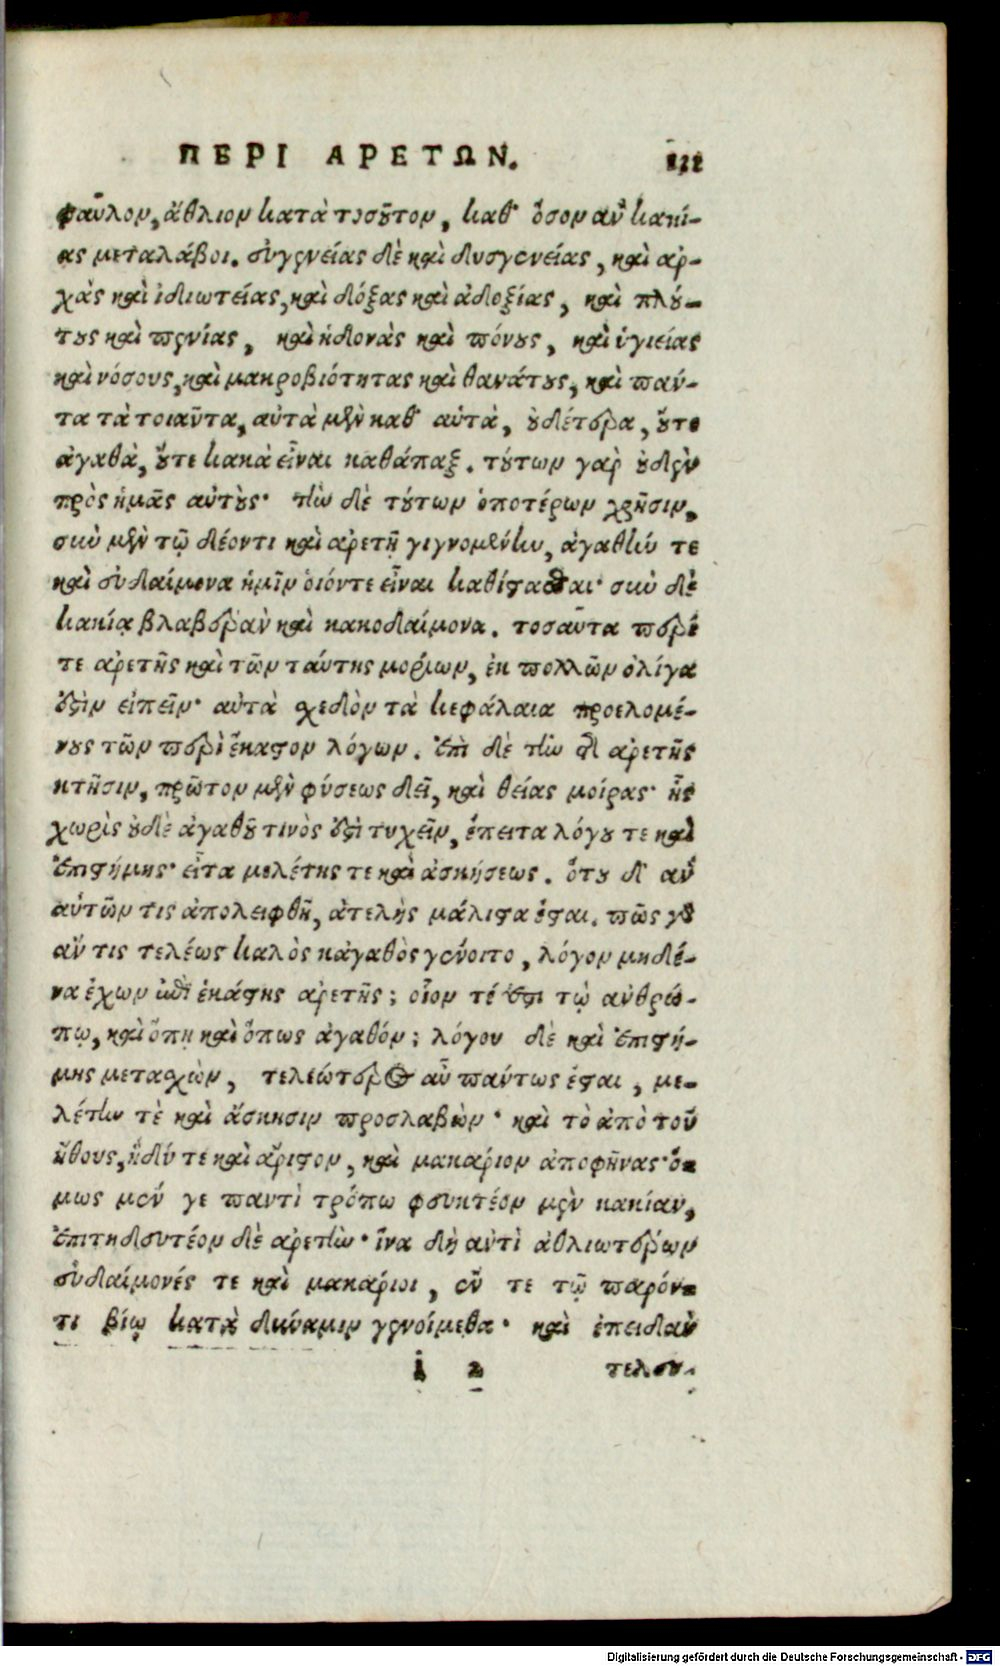 ΠΕΡΙ ΑΡΕΤΩΝ. 111
φαῦλον, ἄθλιον κατὰ τοσοῦτον, καθ' ὅσον ἂν κακί-
ας μεταλάβοι. εὐγενείας δὲ καὶ δυσγενείας, καὶ ἀρ-
χὰς καὶ ἰδιωτείας, καὶ δόξας καὶ ἀδοξίας, καὶ πλού-
τους καὶ πενίας, καὶ ἡδονὰς καὶ πόνους, καὶ ὑγιείας
καὶ νόσους, καὶ μακροβιότητας καὶ θανάτους, καὶ πάν-
τα τὰ τοιαῦτα, αὐτὰ μὲν καθ' αὑτὰ, οὐδέτερα, οὔτε
ἀγαθὰ, οὔτε κακὰ εἶναι καθάπαξ. τούτων γὰρ οὐδὲν
πρὸς ἡμᾶς αὐτούς· τὴν δὲ τούτων ὁποτέρων χρῆσιν,
σὺν μὲν τῷ δέοντι καὶ ἀρετῇ γιγνομένην, ἀγαθήν τε
καὶ εὐδαίμονα ἡμῖν οἷόντε εἶναι καθίστασθαι· σὺν δὲ
κακίᾳ βλαβερὰν καὶ κακοδαίμονα. τοσαῦτα περί
τε ἀρετῆς καὶ τῶν ταύτης μορίων, ἐκ πολλῶν ὀλίγα
ἔστιν εἰπεῖν· αὐτὰ σχεδὸν τὰ κεφάλαια προελομέ-
νους τῶν περὶ ἕκαστον λόγων. ἐπὶ δὲ τὴν τῆς ἀρετῆς
κτῆσιν, πρῶτον μὲν φύσεως δεῖ, καὶ θείας μοίρας· ἧς
χωρὶς οὐδὲ ἀγαθοῦ τινὸς ἔστι τυχεῖν, ἔπειτα λόγου τε καὶ
ἐπιστήμης· εἶτα μελέτης τε καὶ ἀσκήσεως. ὅτου δ' ἂν
αὐτῶν τις ἀπολειφθῇ, ἀτελὴς μάλιστα ἔσται. πῶς γὰρ
ἄν τις τελέως καλὸς κἀγαθὸς γένοιτο, λόγον μηδέ-
να ἔχων περὶ ἑκάστης ἀρετῆς; οἷον τέ ἐστι τῷ ἀνθρώ-
πῳ, καὶ ὅπη καὶ ὅπως ἀγαθόν; λόγου δὲ καὶ ἐπιστή-
μης μετασχὼν, τελεώτερος ἂν πάντως ἔσται, με-
λέτην τὲ καὶ ἄσκησιν προσλαβὼν· καὶ τὸ ἀπὸ τοῦ
ἤθους, ἡδύ τε καὶ ἄριστον, καὶ μακάριον ἀποφήνας· ὅ-
μως μέν γε παντὶ τρόπω φευκτέον μὲν κακίαν,
ἐπιτηδευτέον δὲ ἀρετὴν· ἵνα δὴ ἀντὶ ἀθλιωτέρων
εὐδαίμονές τε καὶ μακάριοι, ἔν τε τῷ παρόν-
τι βίῳ κατὰ δύναμιν γενοίμεθα· καὶ ἐπειδὰν
i 2 τελευ-
Digitalisierung gefördert durch die Deutsche Forschungsgemeinschaft - DFG